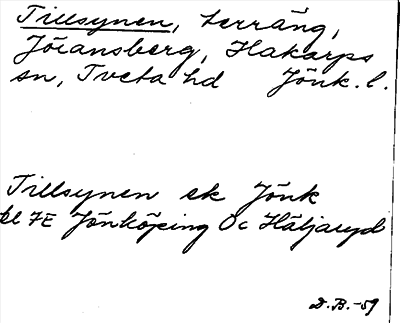 Tillsynen, terräng,
Jöransberg, Hakarps
sn, Tveta hd Jönk. l.
Tillsynen ek Jönk
bl 7E Jönköping Öc Häljaryd
D. B. -59